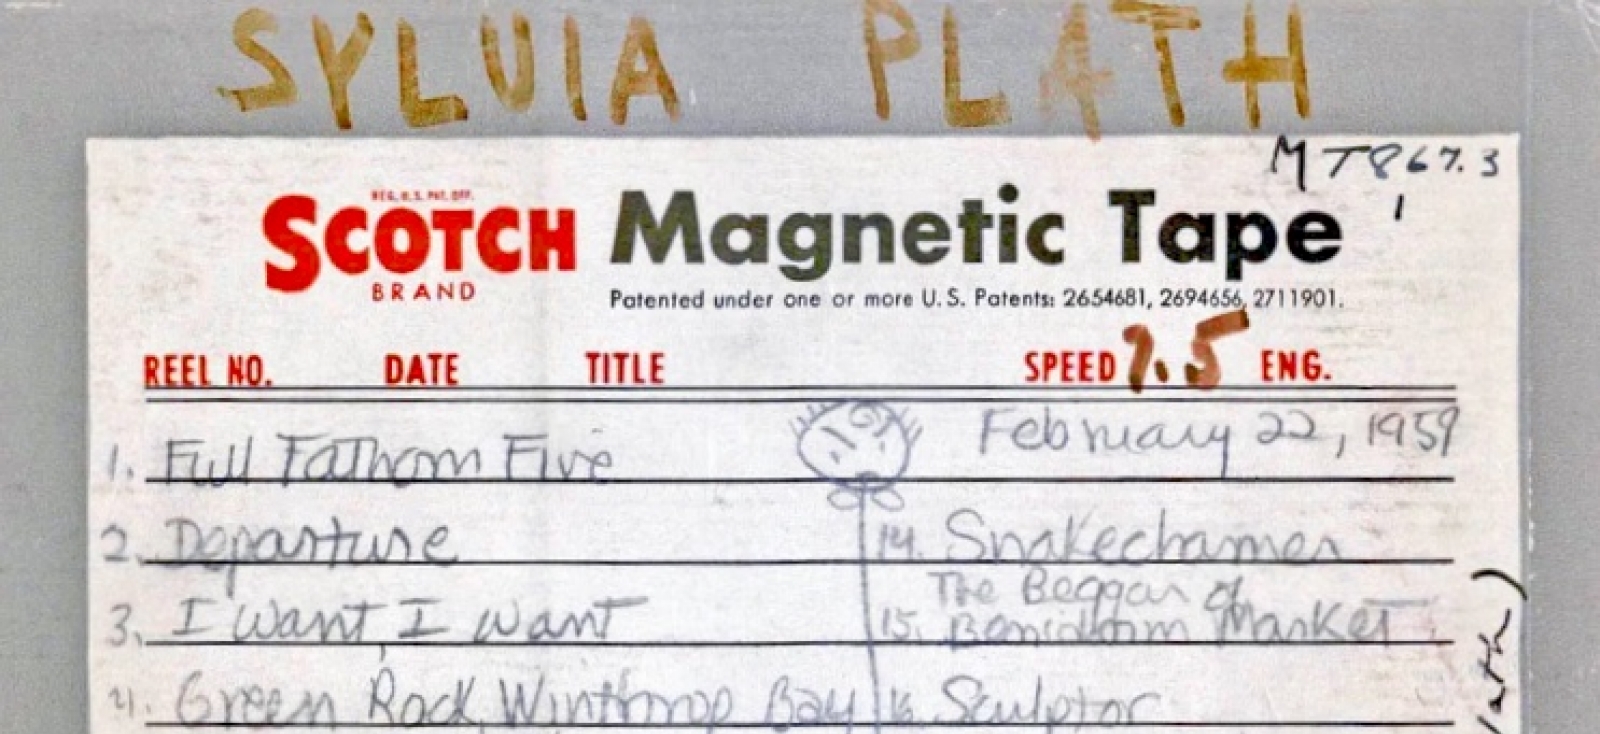 SYLVIA PLATH
MT867.3
1
REG. U.S. PAT. OFF.
SCOTCH Magnetic Tape
BRAND
Patented under one or more U.S. Patents: 2654681, 2694656, 2711901.
REEL NO. DATE TITLE SPEED 7.5 ENG.
February 22, 1959
1. Full Fathom Five
2. Departure
3. I Want, I Want
4. Green Rock, Winthrop Bay
14. Snakecharmer
The Beggar of
15. Benidorm Market
16. Sculptor